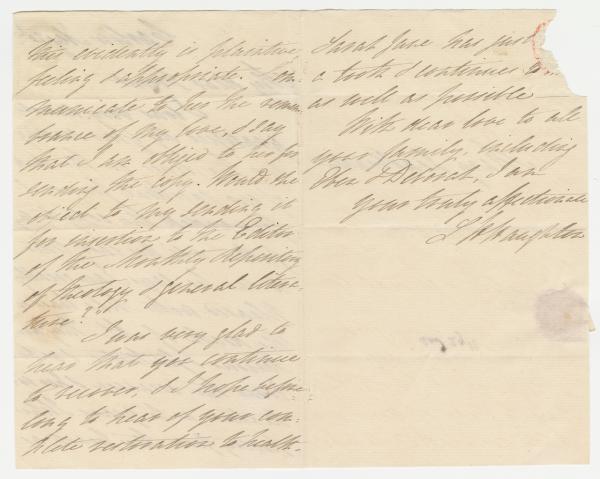 this evidently is plaintive,
feeling & appropriate. Com-
municate to her the remem-
brance of my love, & say
that I am obliged to her for
sending the copy. Would she
object to my sending it
for insertion to the Editor
of the Monthly Repository
of theology & general litera-
ture?
I was very glad to
hear that you continue
to recover, & I hope before
long to hear of your com-
plete restoration to health.
Sarah Jane has just
a tooth & continues
as well as possible
With dear love to all
your family, including
Eben & Deborah, I am
yours truly affectionate
Houghton